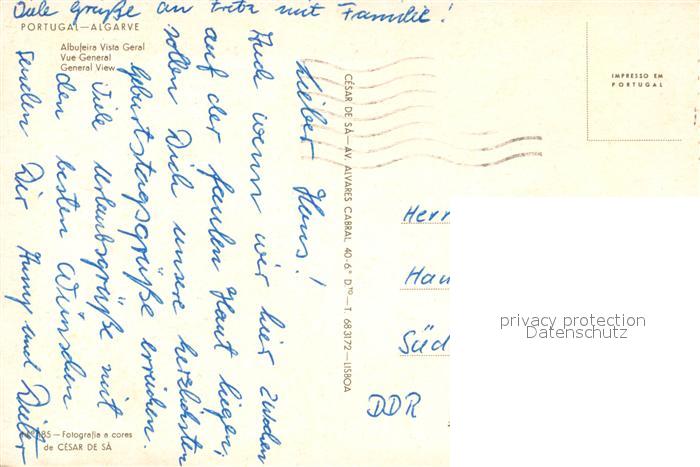 Viele Grüße an Fritz mit Familie!
PORTUGAL—ALGARVE
Albufeira Vista Geral
Vue General
General View
Lieber Hans!
Auch wenn wir hier zwischen
auf der faulen Haut liegen,
sollen Dich unsere herzlichsten
Geburtstagsgrüße erreichen.
Viele Urlaubsgrüße mit
den besten Wünschen
senden Dir Hanny und Dieter
85—Fotografia a cores
de CÉSAR DE SÁ
CÉSAR DE SÁ—AV. ALVARES CABRAL, 40-6° Dto—T. 683172—LISBOA
IMPRESSO EM
PORTUGAL
Herr
Han
Süd
DDR
privacy protection
Datenschutz